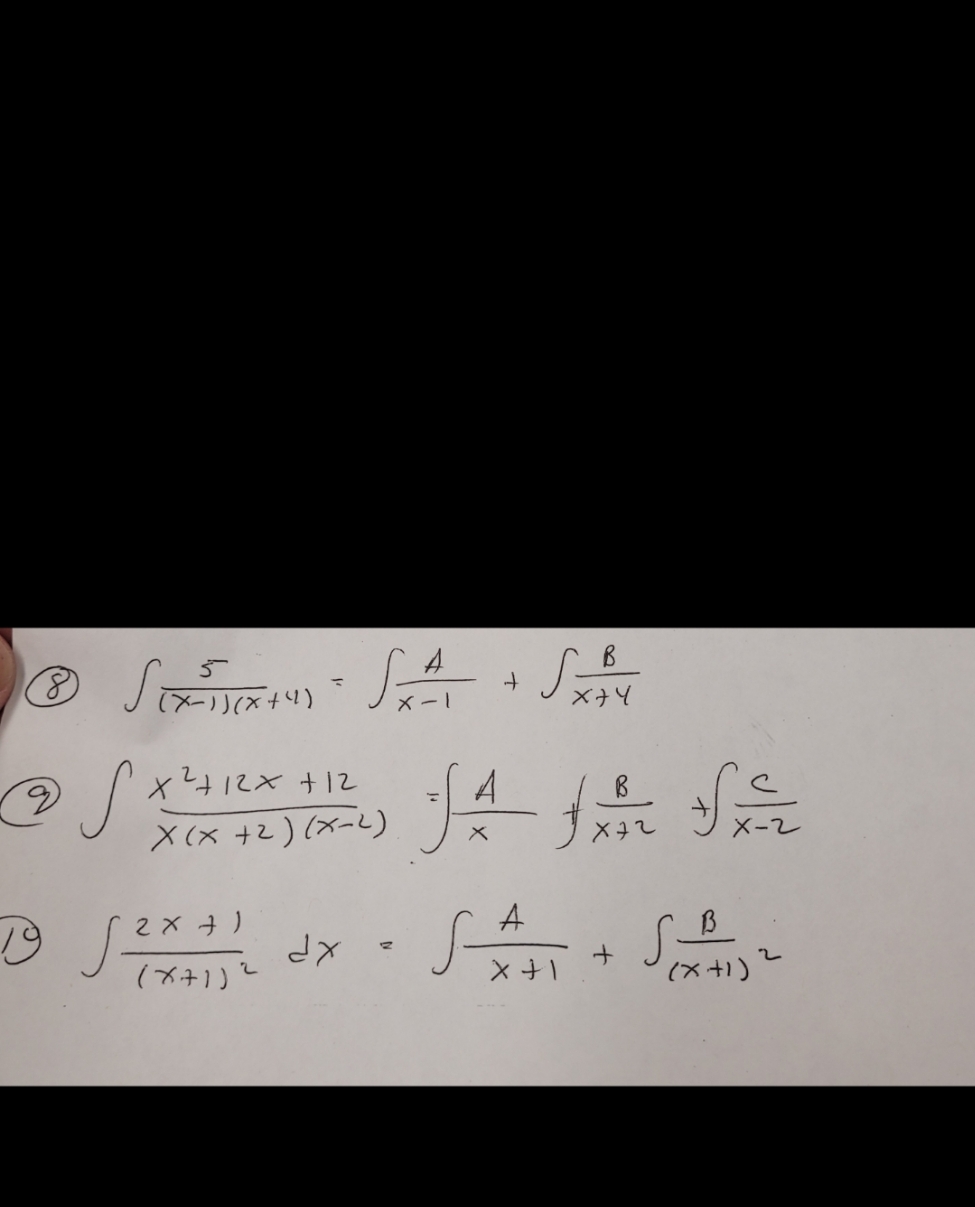 ⑧ ∫ 5/((x-1)(x+4)) = ∫ A/(x-1) + ∫ B/(x+4)
⑨ ∫ (x²+12x+12)/(x(x+2)(x-2)) = ∫ A/x + ∫ B/(x+2) + ∫ C/(x-2)
⑲ ∫ (2x+1)/(x+1)² dx = ∫ A/(x+1) + ∫ B/(x+1)²